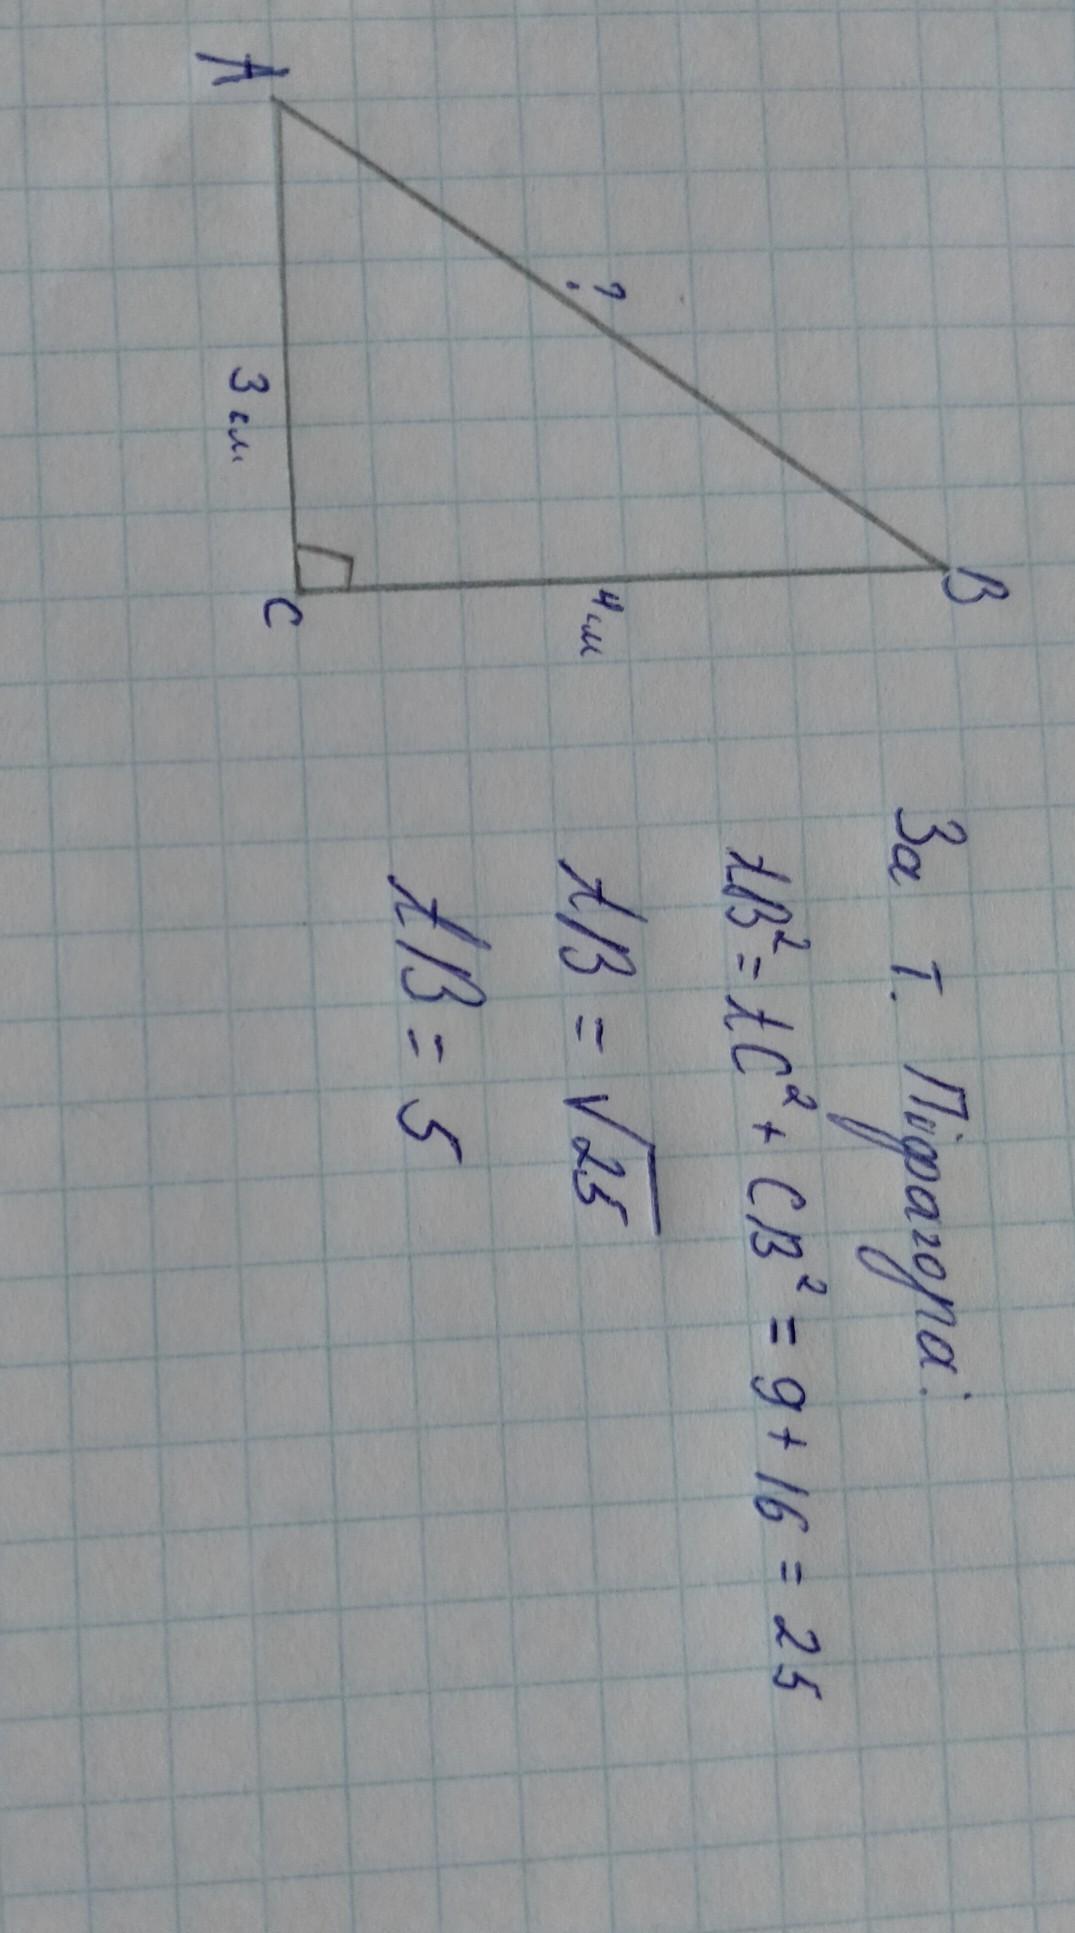 A
B
C
?
3 см
4 см
За т. Піфагора:
AB² = AC² + CB² = 9 + 16 = 25
AB = √25
AB = 5